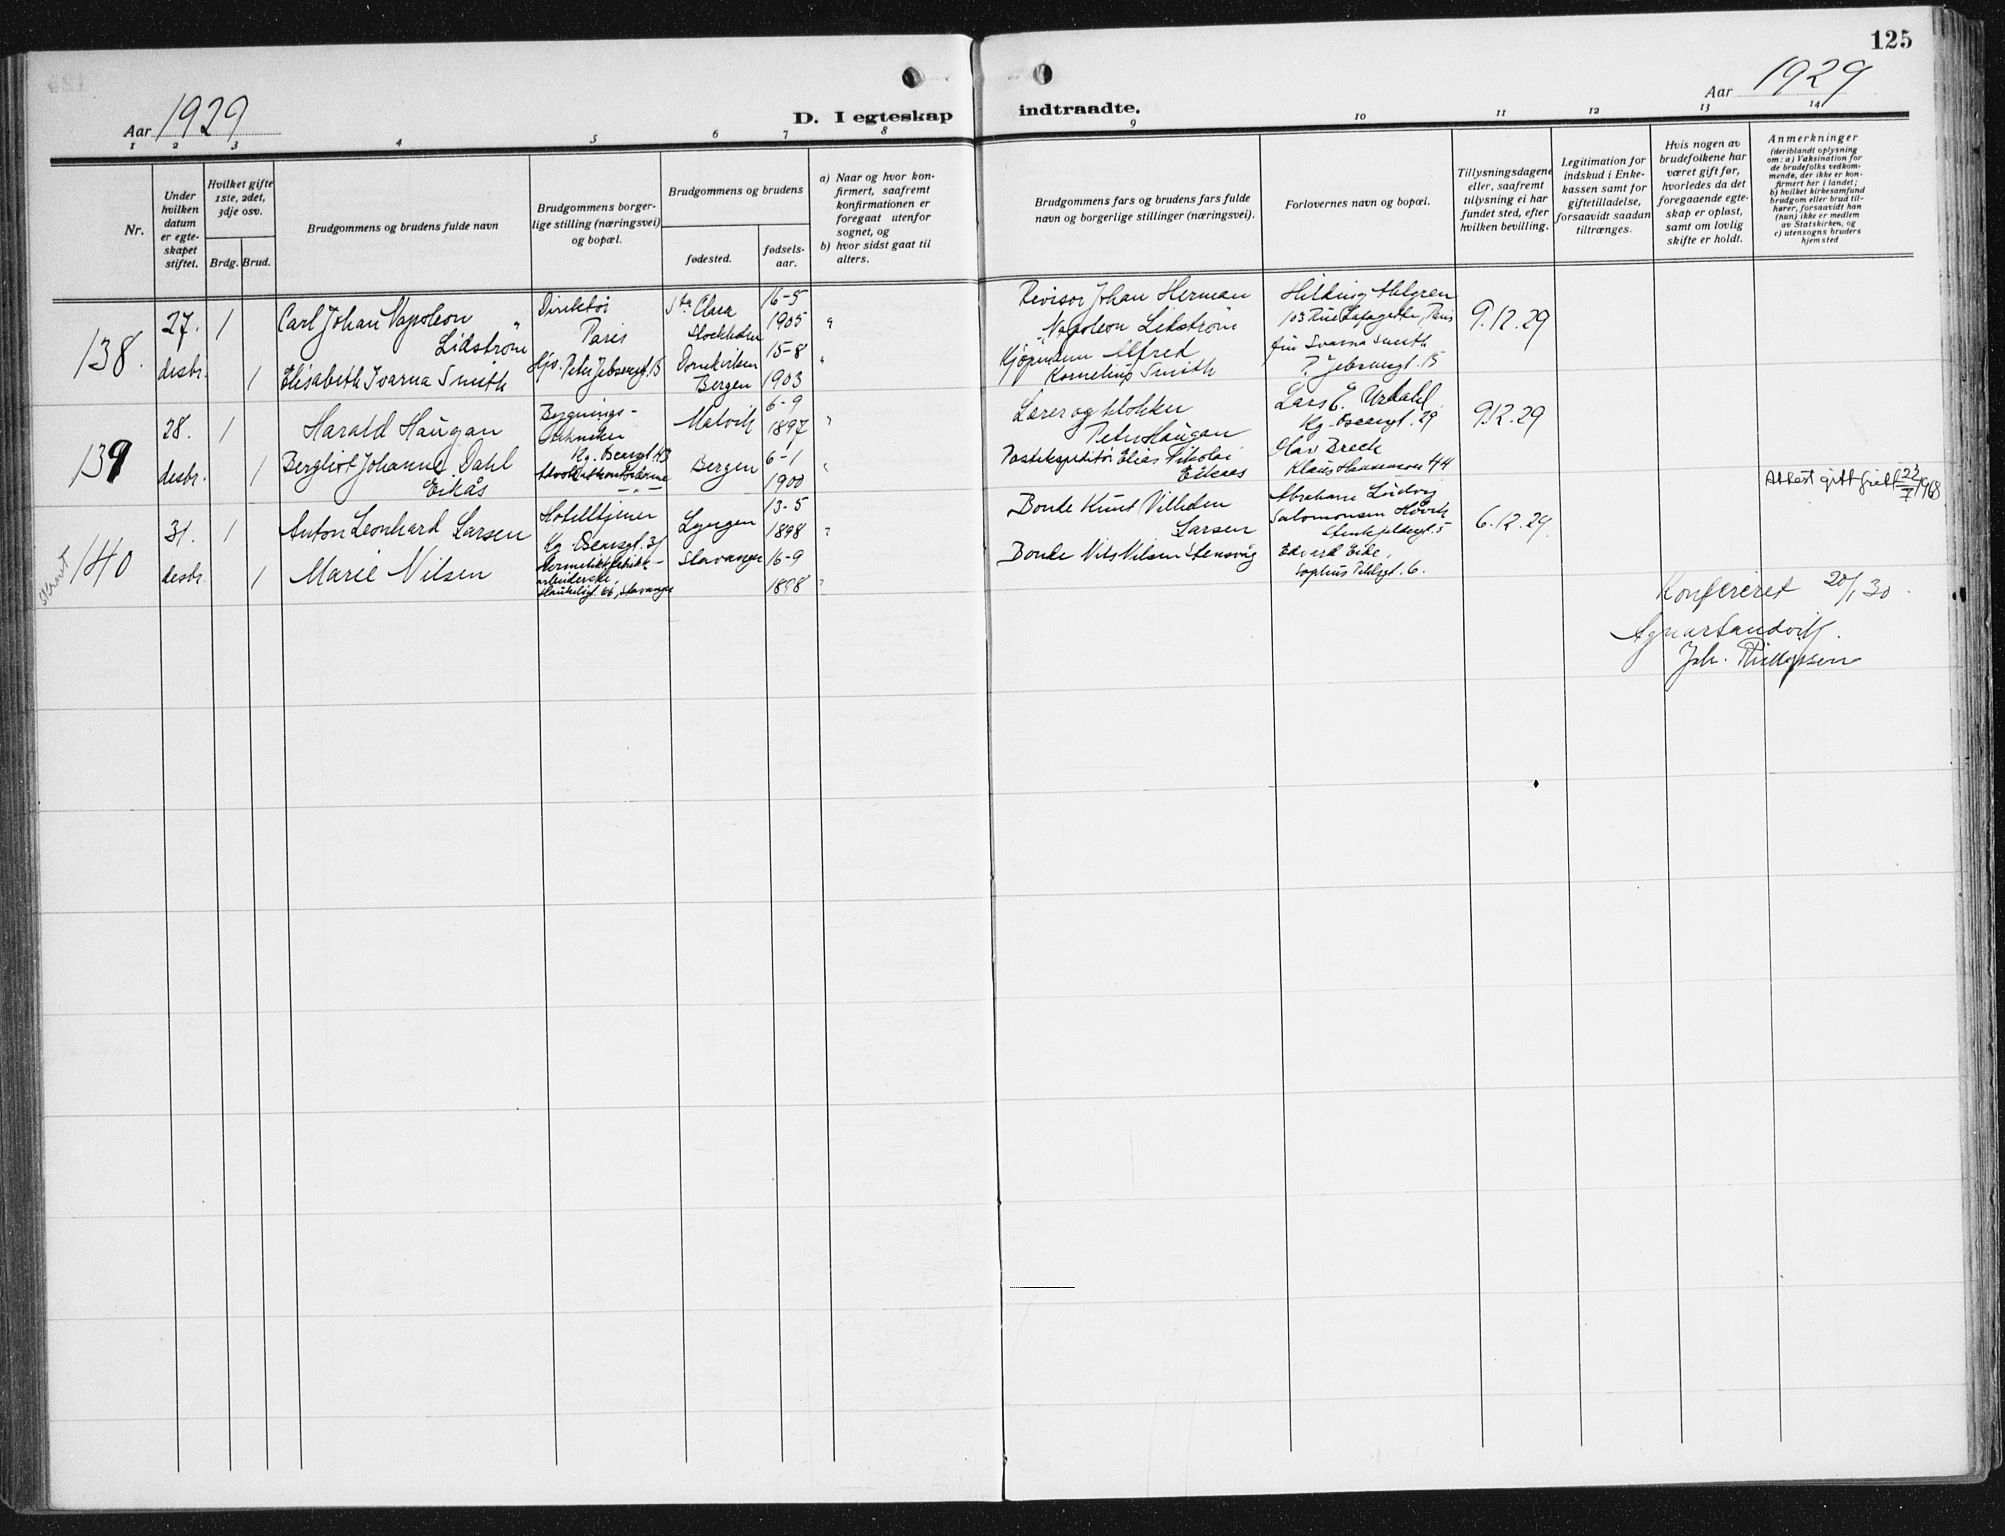 125
Aar 1929
D. I egteskap indtraadte.
Aar 1929
1 2 3 4 5 6 7 8 9 10 11 12 13 14
Nr.
Under
hvilken
datum
er egte-
skapet
stiftet.
Hvilket gifte
1ste, 2det,
3dje osv.
Brdg. Brud.
Brudgommens og brudens fulde navn
Brudgommens borger-
lige stilling (næringsvei)
og bopæl.
Brudgommens og brudens
fødested.
fødsels-
aar.
a) Naar og hvor kon-
firmert, saafremt
konfirmationen er
foregaat utenfor
sognet, og
b) hvor sidst gaat til
alters.
Brudgommens fars og brudens fars fulde
navn og borgerlige stillinger (næringsvei).
Forlovernes navn og bopæl.
Tillysningsdagene
eller, saafremt
tillysning ei har
fundet sted, efter
hvilken bevilling.
Legitimation for
indskud i Enke-
kassen samt for
giftetilladelse,
forsaavidt saadan
tiltrænges.
Hvis nogen av
brudefolkene har
været gift før,
hvorledes da det
foregaaende egte-
skap er opløst,
samt om lovlig
skifte er holdt.
Anmerkninger
(deriblandt oplysning
om: a) Vaksination for
de brudefolks vedkom-
mende, der ikke er kon-
firmert her i landet;
b) hvilket kirkesamfund
brudgom eller brud til-
hører, forsaavidt han
(hun) ikke er medlem
av Statskirken, og
c) utensogns bruders
hjemsted
138.
27.
desbr.
1
1
Carl Johan Napoleon
Lidstrøm
Elisabeth Ivarna Smith
Direktør
Paris
Hjv. Peter Jebsensgt. 15
Sta Clara
Stockholm
Domkirken
Bergen
16-5
1905
15-8
1903
"
"
Revisor Johan Herman
Napoleon Lidstrøm
Kjøpmann Alfred
Kornelius Smith
Hilding Ahlgren
103 Rue Lafayette, Paris
Smith
P. Jebsensgt. 15
9.12.29
139
28.
desbr.
1
1
Harald Haugan
Bergliot Johanne Dahl
Eikås
Bygnings-
tekniker
Kg. Oscarsgt. 43
Malvik
Bergen
6-9
1897
6-1
1900
"
"
Lærer og klokker
Peter Haugan
Postekspeditør Elias Nikolai
Eikaas
Lars E. Urdahl.
Kg. Oscarsgt. 29
Olav Brech
Klaus Hanssensvei 44
9.12.29
Attest gitt 23/7 1968
140
31.
desbr.
1
1
Anton Leonhard Larsen
Marie Nilsen
Hotelltjener
Kg. Oscarsgt. 31
Hermetikkfabrikk-
arbeiderske,
66, Stavanger
Lyngen
Stavanger
13-5
1898
16-9
1898
"
"
Bonde Knut Villiden
Larsen
Bonde Nils Nilsen Stensvig
Abraham Ludvig
Salomonsen Hovik
Stenkjeldergt. 5
Edvard Eide,
Sophus Pihlsgt. 6.
6.12.29.
Konfereret 20/1 30.
Agnar Sandvik.
Joh.